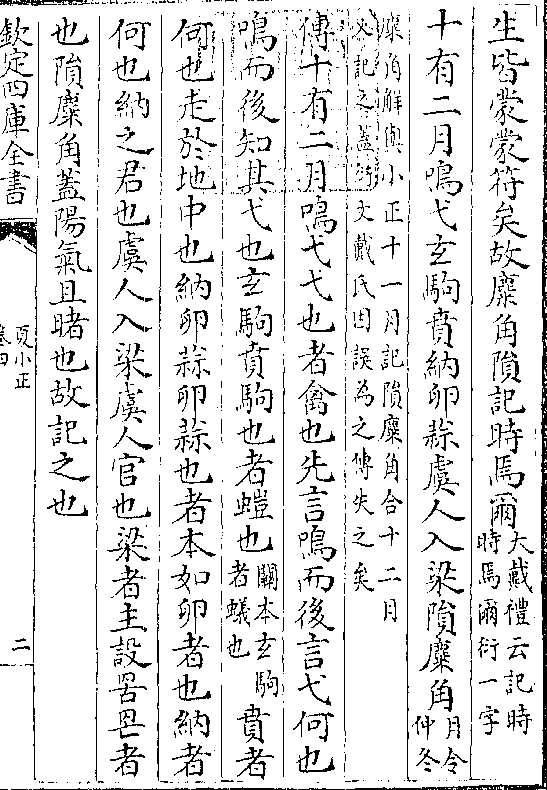 生皆蒙蒙符矣故麋角隕記時焉爾大戴禮云記時
時焉爾衍一字
十有二月鳴弋玄駒賁納卵蒜虞人入梁隕麋角月令
仲冬
麋角解與小正十一月記隕麋角合十二月
又記之蓋衍文戴氏因誤為之傳失之矣
傳十有二月鳴弋弋也者禽也先言鳴而後言弋何也
鳴而後知其弋也玄駒賁駒也者螘也關本玄駒
者蟻也賁者
何也走於地中也納卵蒜卵蒜也者本如卵者也納者
何也納之君也虞人入梁虞人官也梁者主設罟罛者
也隕麋角蓋陽氣且睹也故記之也
欽定四庫全書
夏小正
卷四
二